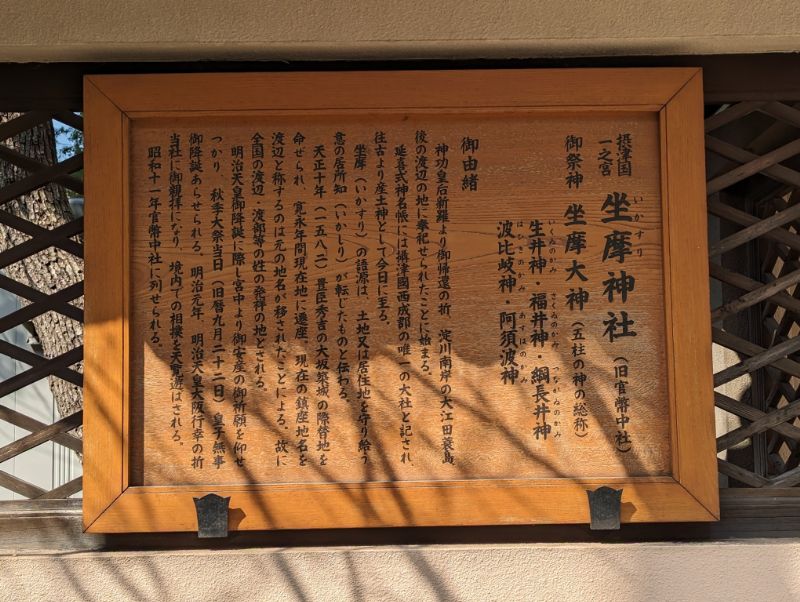 摂津国
一之宮
坐摩神社
いかすり
（旧官幣中社）
御祭神 坐摩大神（五柱の神の総称）
生井神・福井神・綱長井神
いくゐのかみ さくゐのかみ つながゐのかみ
波比岐神・阿須波神
はひきのかみ あすはのかみ
御由緒
神功皇后新羅より御帰還の折、淀川南岸の大江田蓑島、
後の渡辺の地に奉祀せられたことに始まる。
延喜式神名帳には摂津國西成郡の唯一の大社と記され、
往古より産土神として今日に至る。
坐摩（いかすり）の語源は、土地又は居住地を守り給う
意の居所知（いかしり）が転じたものと伝わる。
天正十年（一五八二）豊臣秀吉の大坂築城の際替地を
命ぜられ、寛永年間現在地に遷座。現在の鎮座地名を
渡辺と称するのは元の地名が移されたことによる。故に
全国の渡辺・渡部等の姓の発祥の地とされる。
明治天皇御降誕に際し宮中より御安産の御祈願を仰せ
つかり、秋季大祭当日（旧暦九月二十二日）皇子無事
御降誕あらせられる。明治元年、明治天皇大阪行幸の折
当社に御親拝になり、境内での相撲を天覧遊ばされる。
昭和十一年官幣中社に列せられる。